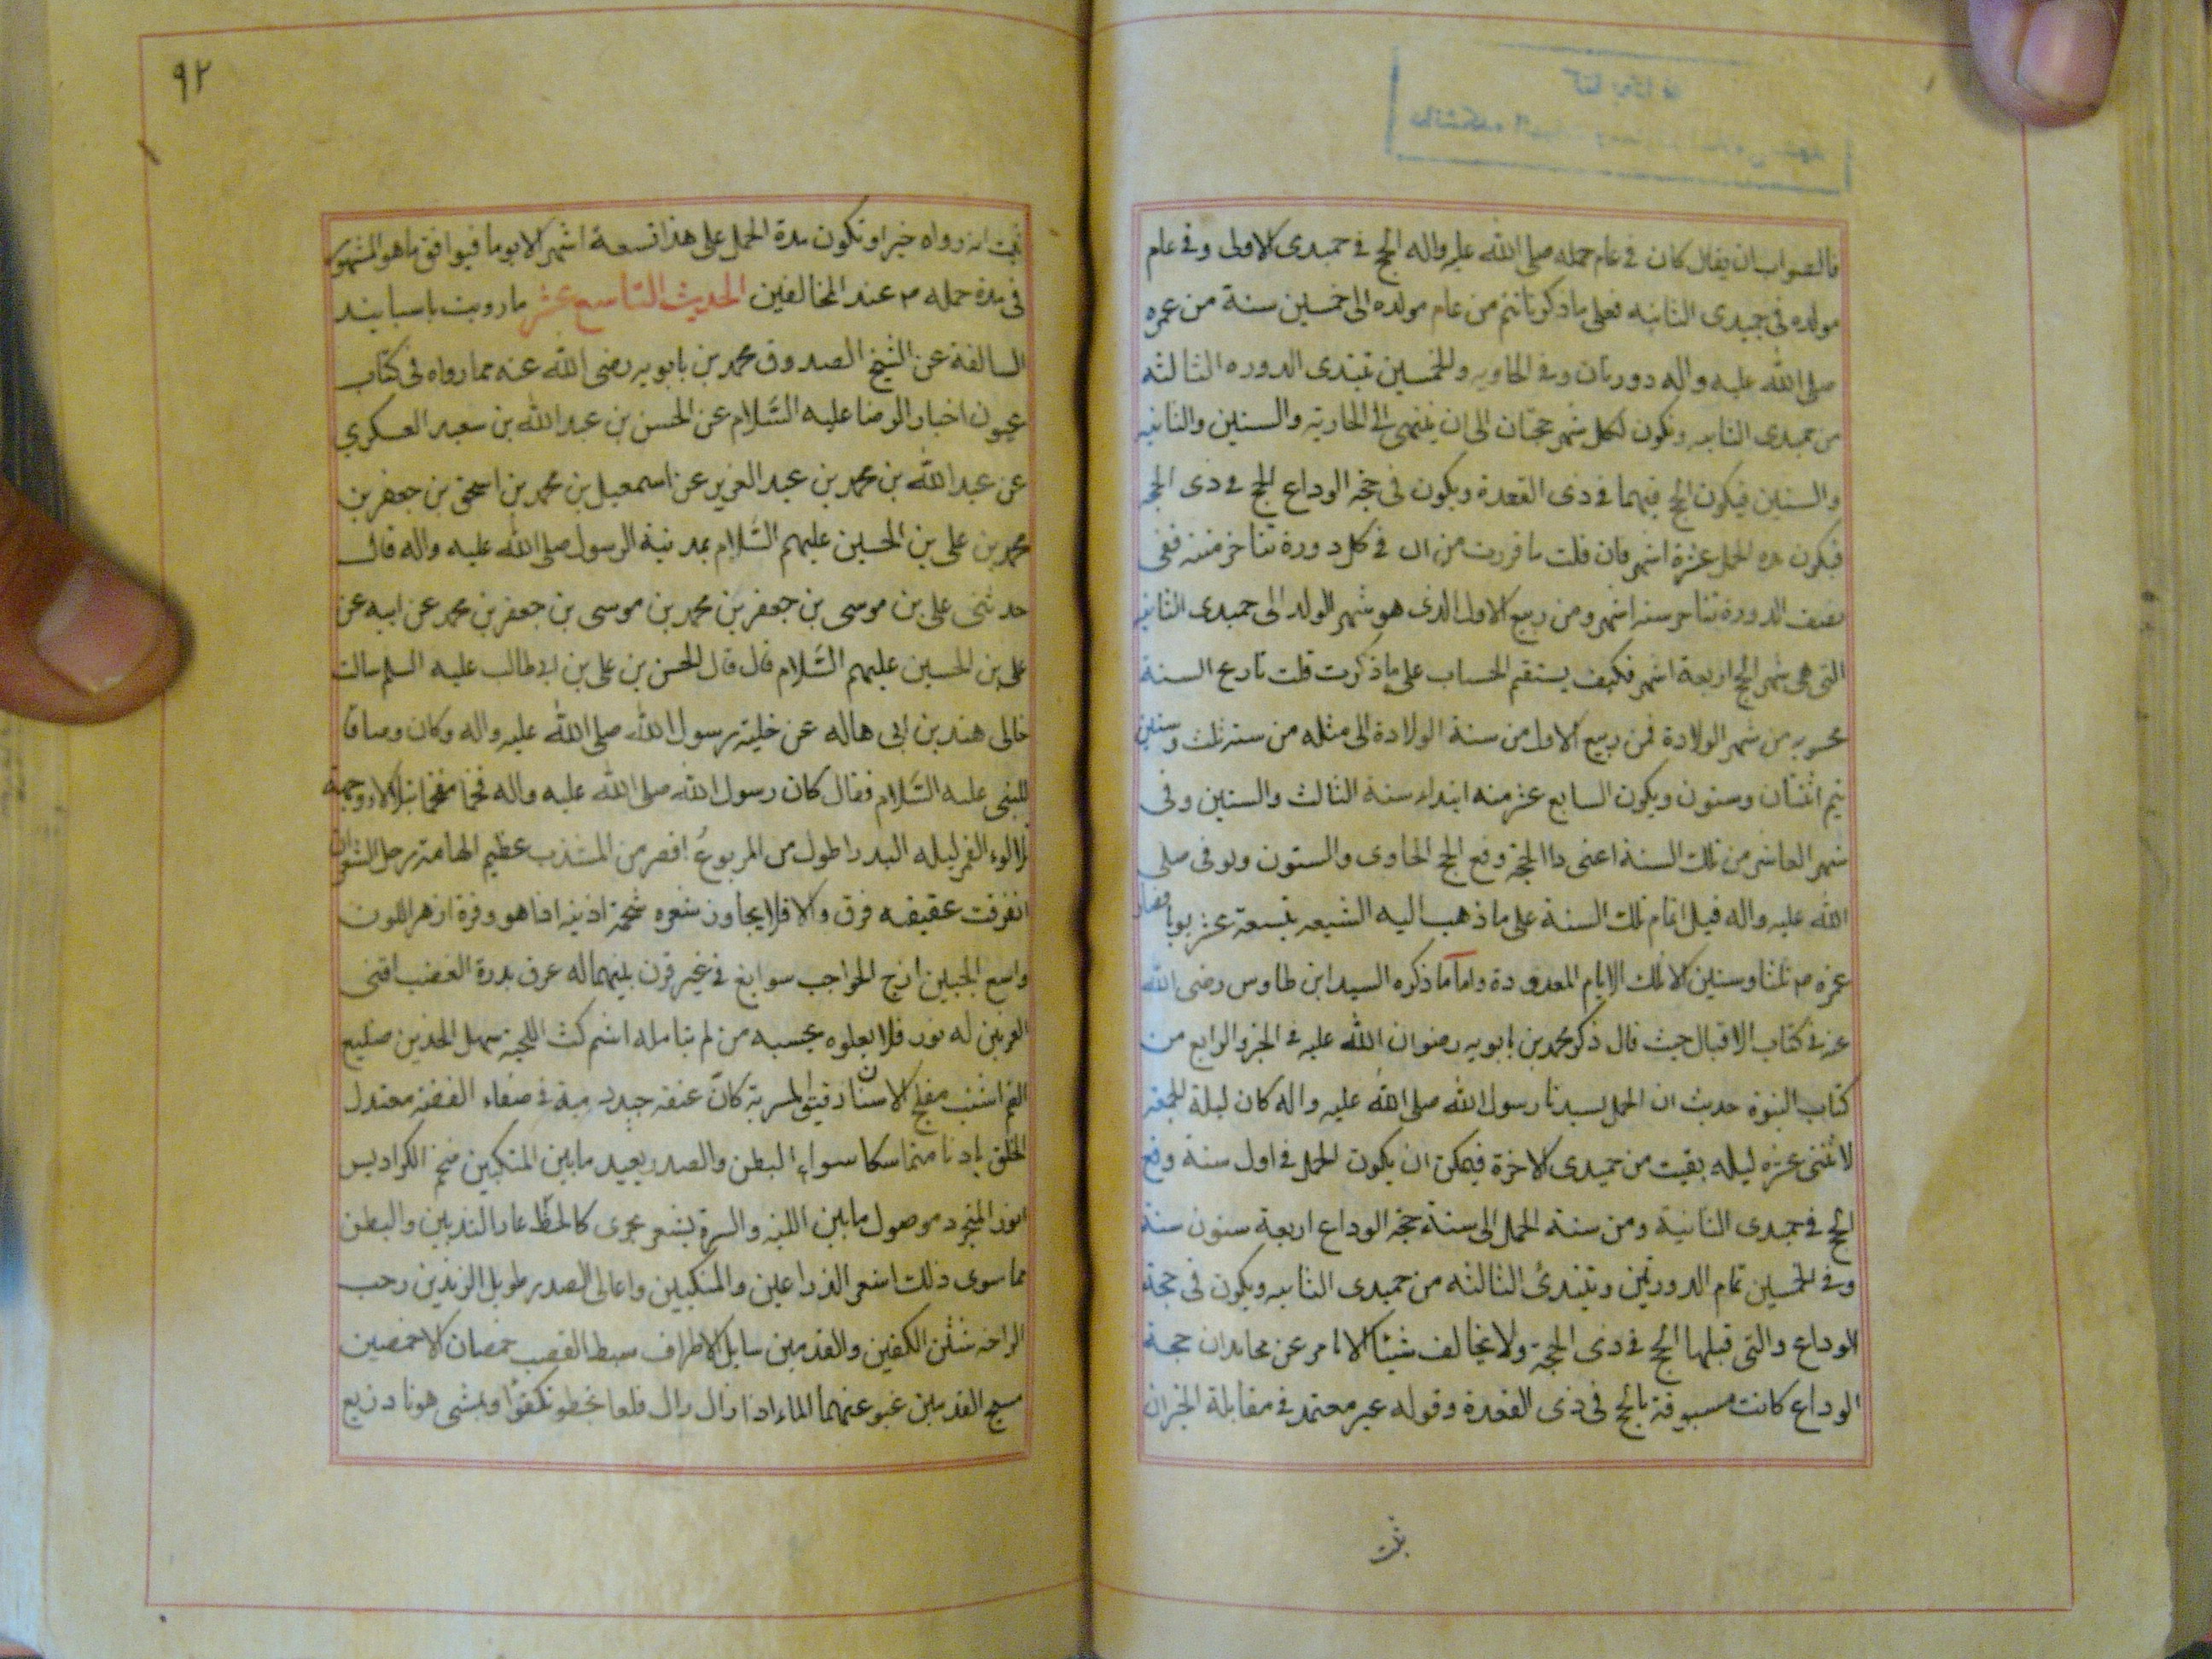 فالصواب ان يقال كان في عام حمله صلى الله عليه واله الحج في جميدى الاولى وفي عام
مولده في جميدى الثانيه فعلى ما ذكرنا تتم من عام مولده الى خمسين سنة من عمره
صلى الله عليه واله دورتان وفي الحاويه والخمسين تبتدى الدوره الثالثه
من جميدى الثانيه ويكون لكل شهر حجتان الى ان ينتهى الى الحادية والستين والثانيه
والستين فيكون الحج فيهما في ذى القعدة ويكون في حجة الوداع الحج في ذى الحجه
فيكون مده الحمل عشرة اشهر فان قلت ما قررت من ان في كل دورة تتاخر سنة ففى
نصف الدورة تتاخر ستة اشهر ومن ربيع الاول الذى هو شهر المولد الى جميدى الثانيه
التى هى شهر الحج اربعة اشهر فكيف يستقيم الحساب على ما ذكرت قلت تاريخ السنة
محسوبه من شهر الولادة فمن ربيع الاول من سنة الولادة الى مثله من سنة ثلث وستين
يتم اثنتان وستون ويكون السابع عشر منه ابتداء سنة الثالث والستين وفى
شهر العاشر من تلك السنة اعنى ذا الحجة وقع الحج الحاوى والستون وتوفى صلى
الله عليه واله قبل اتمام تلك السنة على ما ذهب اليه الشيعه بتسعة عشر يوما فصار
عمره ص ثلثا وستين الا تلك الايام المعدودة واما ما ذكره السيد ابن طاوس رضى الله
عنه في كتاب الاقبال حيث قال ذكر محمد بن بابويه رضوان الله عليه في الجزء الرابع من
كتاب النبوة حديث ان الحمل بسيدنا رسول الله صلى الله عليه واله كان ليلة الجمعه
لاثنى عشره ليله بقيت من جميدى الاخرة فيمكن ان يكون الحمل في اول سنة وقع
الحج في جميدى الثانية ومن سنة الحمل الى سنة حجة الوداع اربعة ستون سنة
وفي الخمسين تمام الدورتين وتبتدئ الثالثه من جميدى الثانيه ويكون في حجة
الوداع والتى قبلها الحج في ذى الحجة ولا يخالف شيئا الا ما مر عن مجاهد ان حجة
الوداع كانت مسبوقة بالحج في ذى القعدة وقوله غير معتمد في مقابلة الخبر ان
ثبت
٩٢
ثبت انه رواه خبرا وتكون مدة الحمل على هذا تسعة اشهر الا يوما فيوافق ما هو المشهور
في مدة حمله ص عند المخالفين الحديث التاسع عشر ما رويت باسانيد
السالفة عن الشيخ الصدوق محمد بن بابويه رضى الله عنه مما رواه في كتاب
عيون اخبار الرضا عليه السلام عن الحسن بن عبد الله بن سعيد العسكري
عن عبد الله بن محمد بن عبد العزيز عن اسمعيل بن محمد بن اسحق بن جعفر بن
محمد بن على بن الحسين عليهم السلام بمدينة الرسول صلى الله عليه واله قال
حدثنى على بن موسى بن جعفر بن محمد بن موسى بن جعفر بن محمد عن ابيه عن
على بن الحسين عليهم السلام قال قال الحسن بن على بن ابى طالب عليه السلم سالت
خالى هند بن ابى هاله عن حلية رسول الله صلى الله عليه واله وكان وصافا
للنبى عليه السلام فقال كان رسول الله صلى الله عليه واله فخما مفخما يتلالا وجهه
تلالوء القمر ليله البدر اطول من المربوع اقصر من المشذب عظيم الهامة رجل الشعر ان
انفرقت عقيقه فرق والا فلا يجاوز شعره شحمة اذنيه اذا هو وفرة ازهر اللون
واسع الجبين ازج الحواجب سوابغ في غير قرن بينهما له عرق يدره الغضب اقنى
العرنين له نور فلا يعلوه يحسبه من لم يتامله اشم كث اللحية سهل الخدين ضليع
الفم اشنب مفلج الاسنان دقيق المسربة كان عنقه جيد دمية في صفاء الفضة معتدل
الخلق بادنا متماسكا سواء البطن والصدر بعيد ما بين المنكبين ضخم الكراديس
انور المتجرد موصول ما بين اللبه والسرة بشعر يجرى كالخط عار الثديين والبطن
مما سوى ذلك اشعر الذراعين والمنكبين واعالى الصدر طويل الزندين رحب
الراحه شثن الكفين والقدمين سايل الاطراف سبط القصب خمصان الاخمصين
مسيح القدمين ينبو عنهما الماء اذا زال زال قلعا يخطو تكفؤا ويمشى هونا ذريع